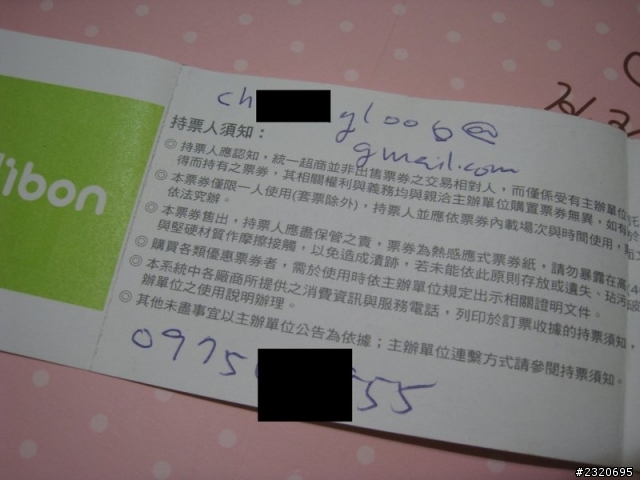 ch
yloo6@
gmail.com
持票人須知：
◎ 持票人應認知，統一超商並非出售票券之交易相對人，而僅係受有主辦單位
得而持有之票券，其相關權利與義務均與親洽主辦單位購置票券無異，如有
◎ 本票券僅限一人使用(套票除外)，持票人並應依票券內載場次與時間使用，
依法究辦。
◎ 本票券售出，持票人應盡保管之責，票券為熱感應式票券紙，請勿暴露在高
與堅硬材質作摩擦接觸，以免造成潰跡，若未能依此原則存放或遺失、玷污
◎ 購買各類優惠票券者，需於使用時依主辦單位規定出示相關證明文件。
◎ 本系統中各廠商所提供之消費資訊與服務電話，列印於訂票收據的持票須知，
辦單位之使用說明辦理。
◎ 其他未盡事宜以主辦單位公告為依據；主辦單位連繫方式請參閱持票須知。
0975
55
ibon
#2320695